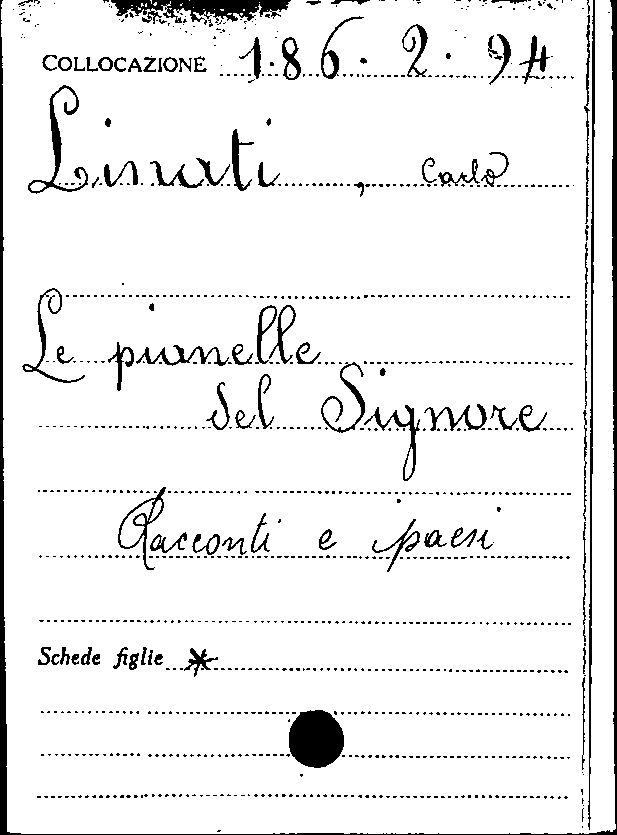 COLLOCAZIONE 186. 2. 94
Linati, Carlo
Le pianelle
del Signore
Racconti e paesi
Schede figlie *